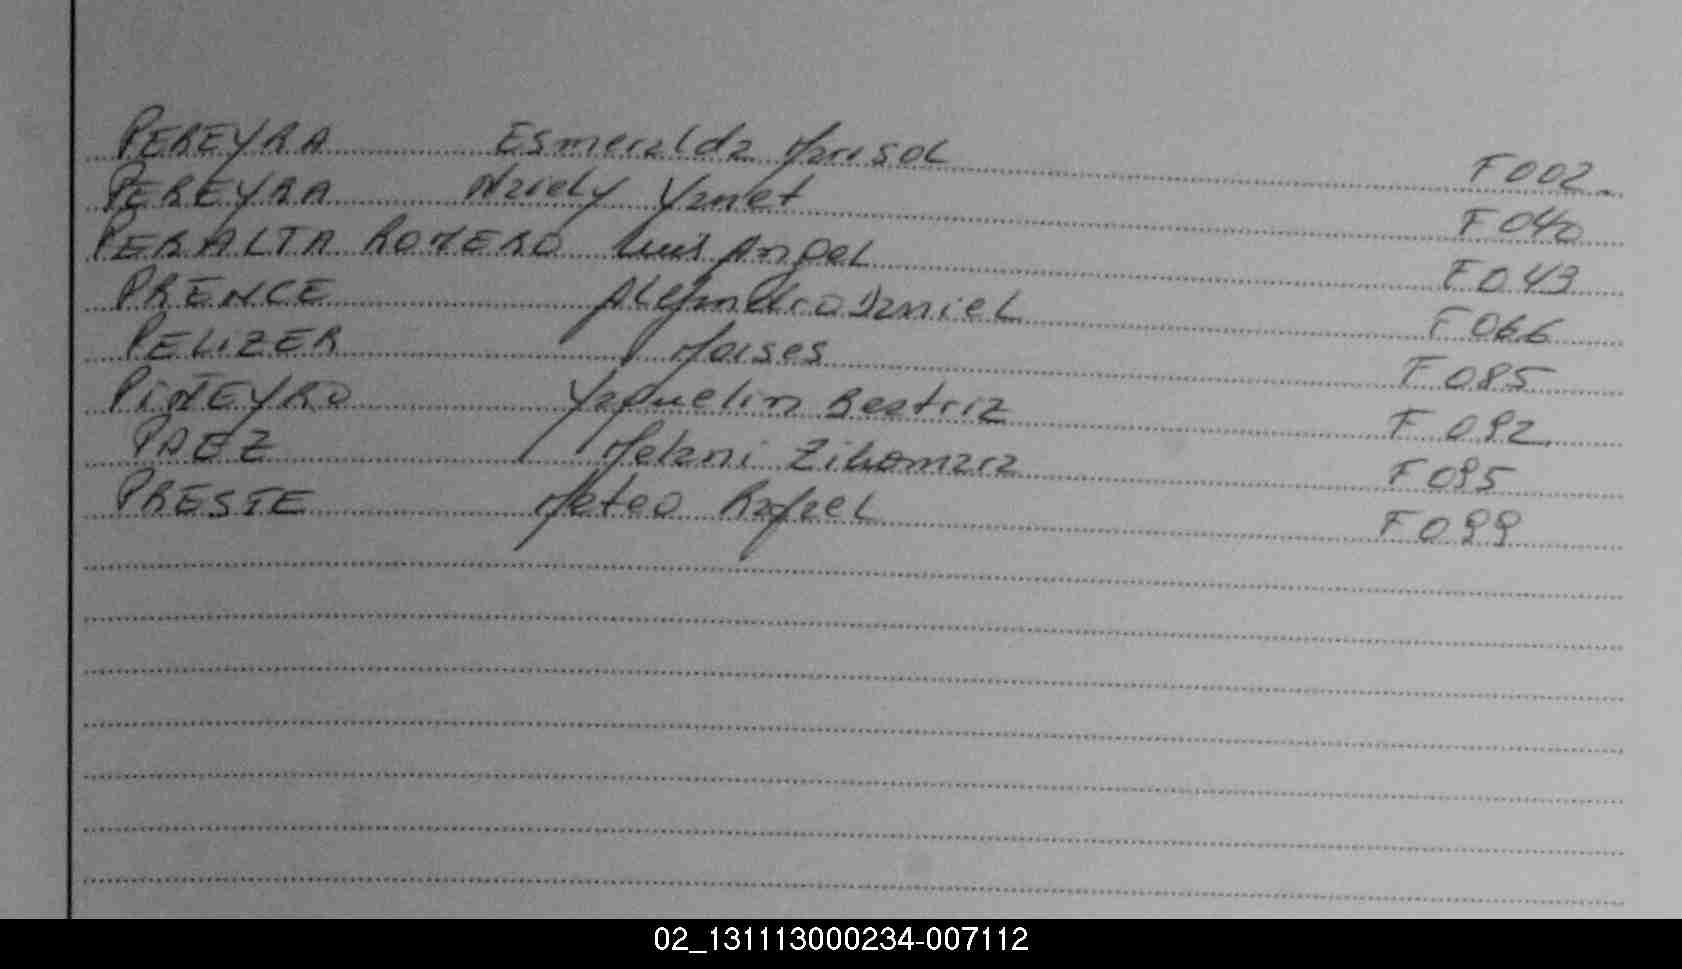 PEREYRA Esmeralda Marisol F002
PEREYRA Naiely Yanet F040
PERALTA ROMERO Luis Angel F043
PRENCE Alejandro Daniel F066
PELIZER Moises F085
PIÑEYRO Yaquelin Beatriz F092
PAEZ Melani F095
PRESTE Mateo Rafael F099
02_131113000234-007112